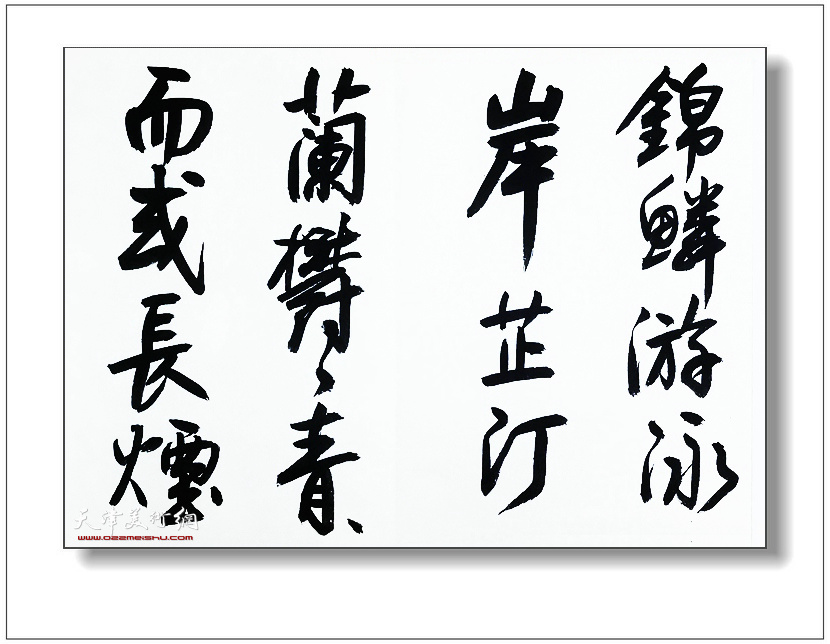 錦鱗游泳
岸芷汀
蘭鬱々青々
而或長煙
天津美術網
www.022meishu.com